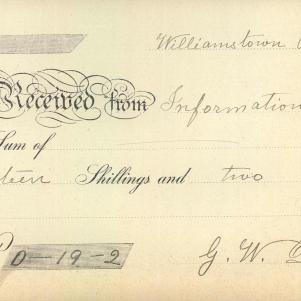 Williamstown
Received from Information
Sum of
teen Shillings and two
0-19-2
G. W.